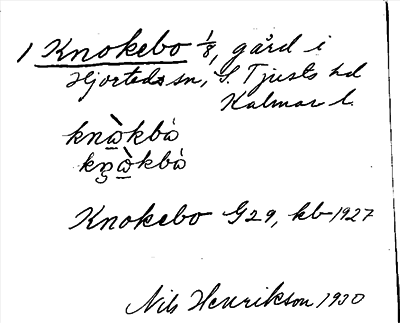 1 Knokebo 1/8, gård i
Hjorteds sn, S. Tjusts hd
Kalmar l.
Knokebo G29, kb 1927
Nils Henrikson 1930